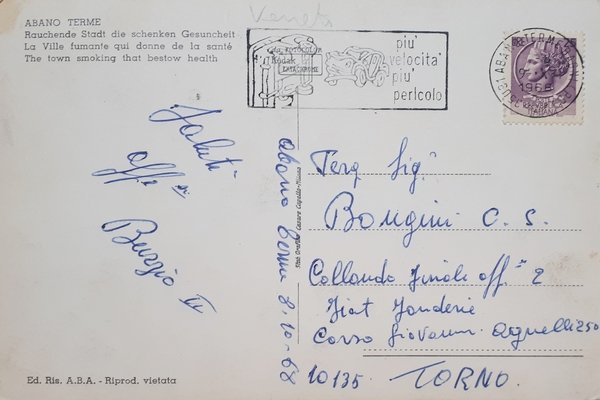 Veneto
ABANO TERME
Rauchende Stadt die schenken Gesuncheit
La Ville fumante qui donne de la santé
The town smoking that bestow health
Kodak
piu'
velocita'
piu'
pericolo
ABANO TERME
1968
Saluti
aff.si
Burzio
Abano Terme 8-10-68
Stab. Grafico Cesare Capello-Milano
Bongini C. S.
Collaudo Finale off. 2
Fiat Fonderie
Corso Giovanni Agnelli 250
10135. TORNO.
Ed. Ris. A.B.A. - Riprod. vietata